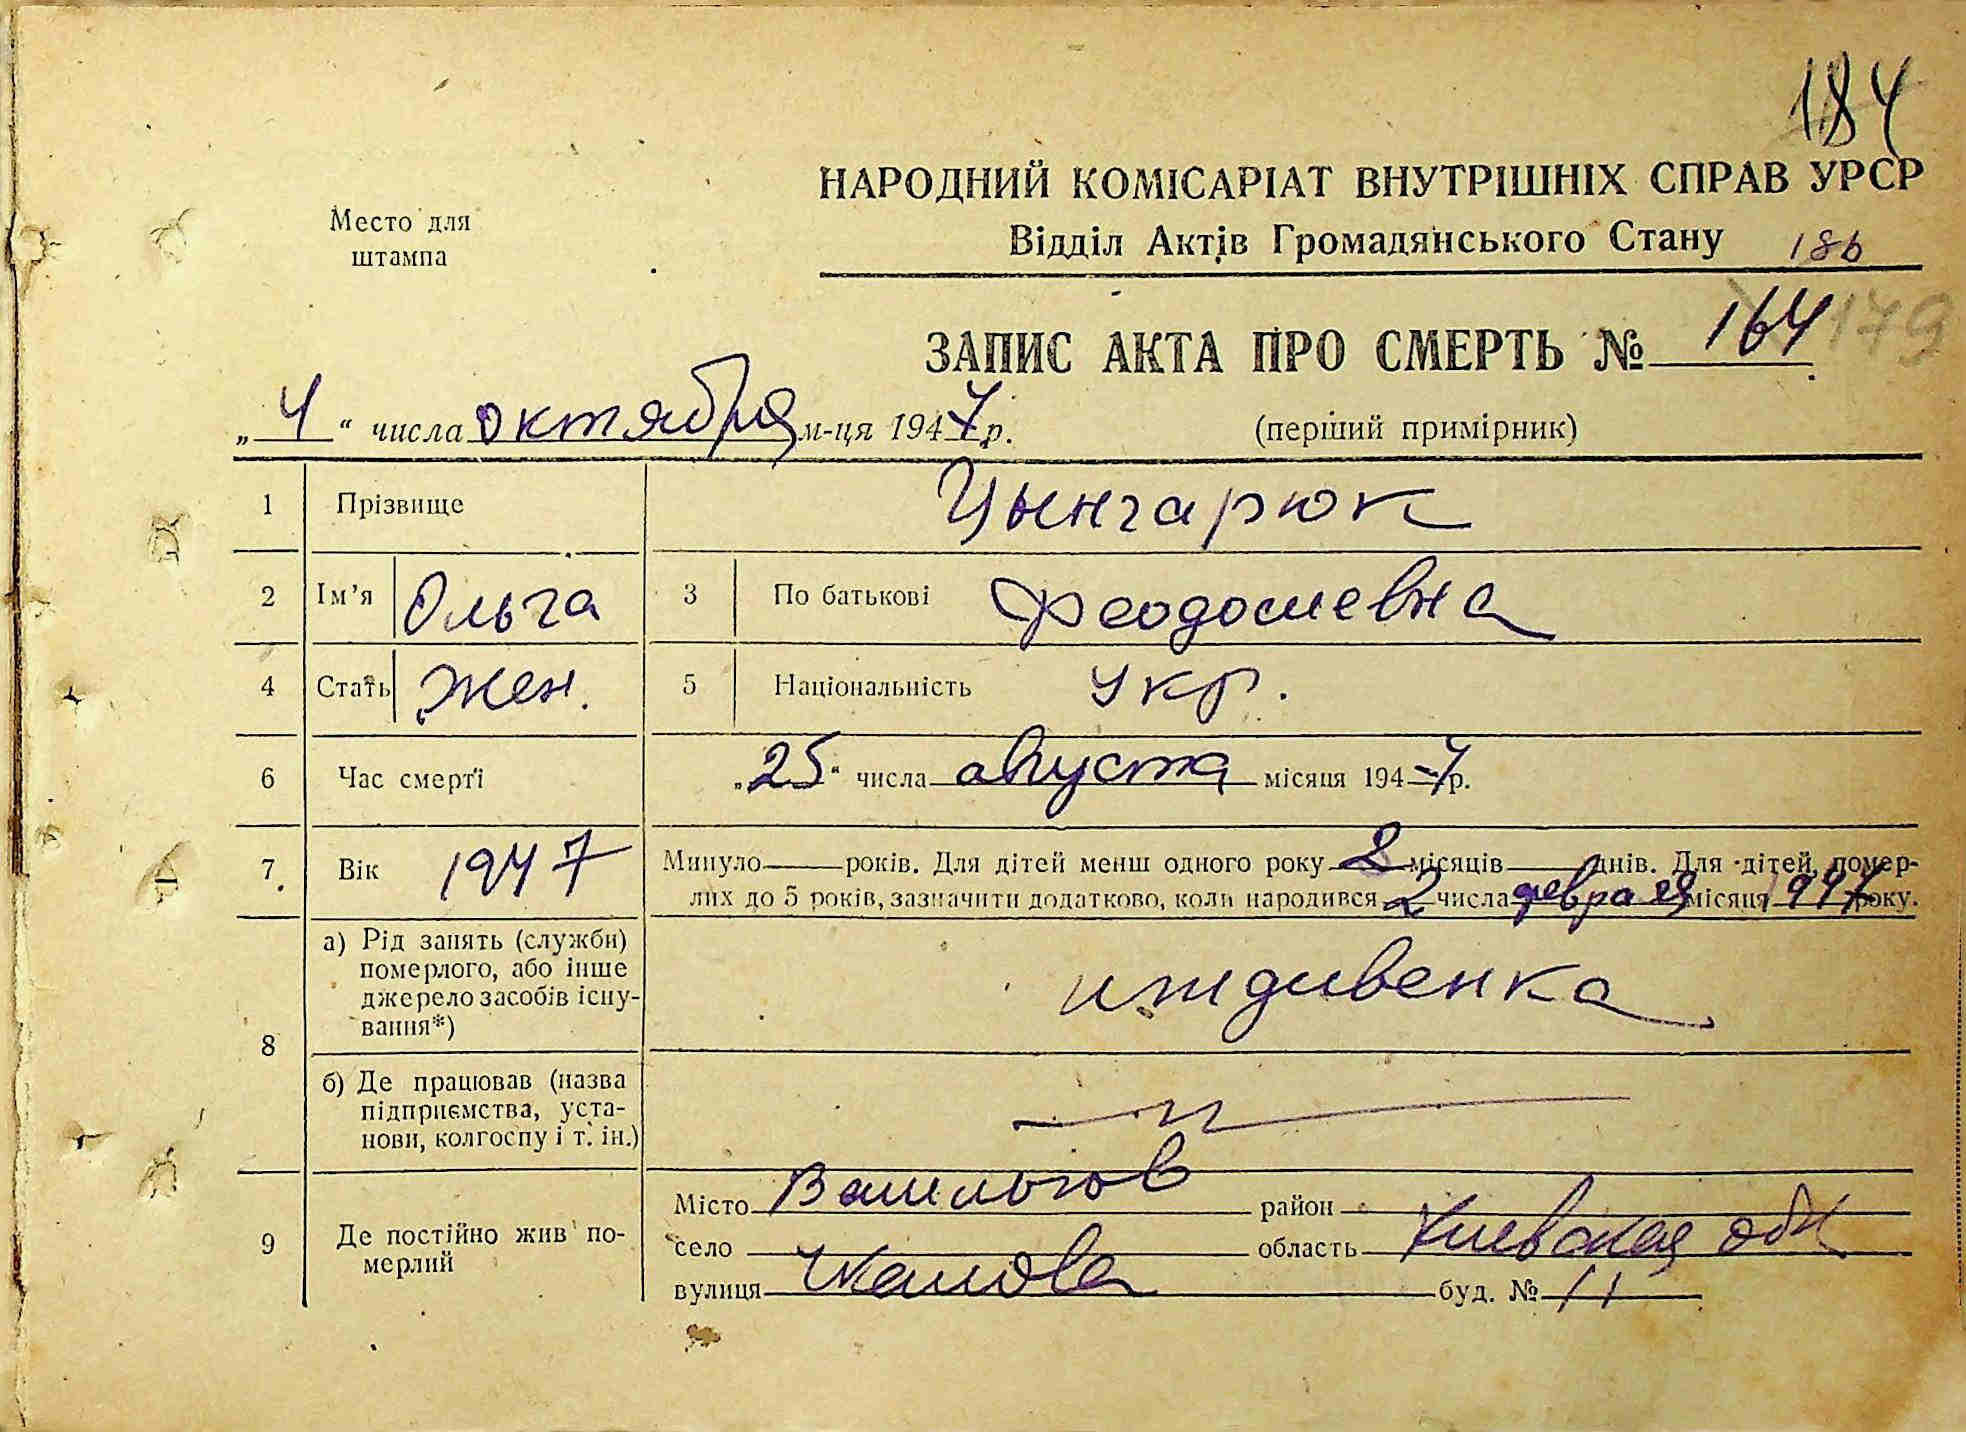 184
НАРОДНИЙ КОМІСАРІАТ ВНУТРІШНІХ СПРАВ УРСР
Место для штампа
Відділ Актів Громадянського Стану 186
ЗАПИС АКТА ПРО СМЕРТЬ № 164 179
„4“ числа октября м-ця 1947 р. (перший примірник)
1 Прізвище Цынгарюк
2 Ім’я Ольга 3 По батькові Феодосиевна
4 Стать Жен. 5 Національність Укр.
6 Час смерті „25“ числа августа місяця 1947 р.
7 Вік 1947 Минуло — років. Для дітей менш одного року місяців — днів. Для дітей, помер-
лих до 5 років, зазначити додатково, коли народився 2 числа февраля місяця 1947 року.
8 а) Рід занять (служби)
померлого, або інше
джерело засобів існу-
вання*) иждивенка
б) Де працював (назва
підприємства, уста-
нови, колгоспу і т. ін.) — " —
9 Де постійно жив по-
мерлий
Місто Васильков район
село область Киевская обл
вулиця буд. № 11